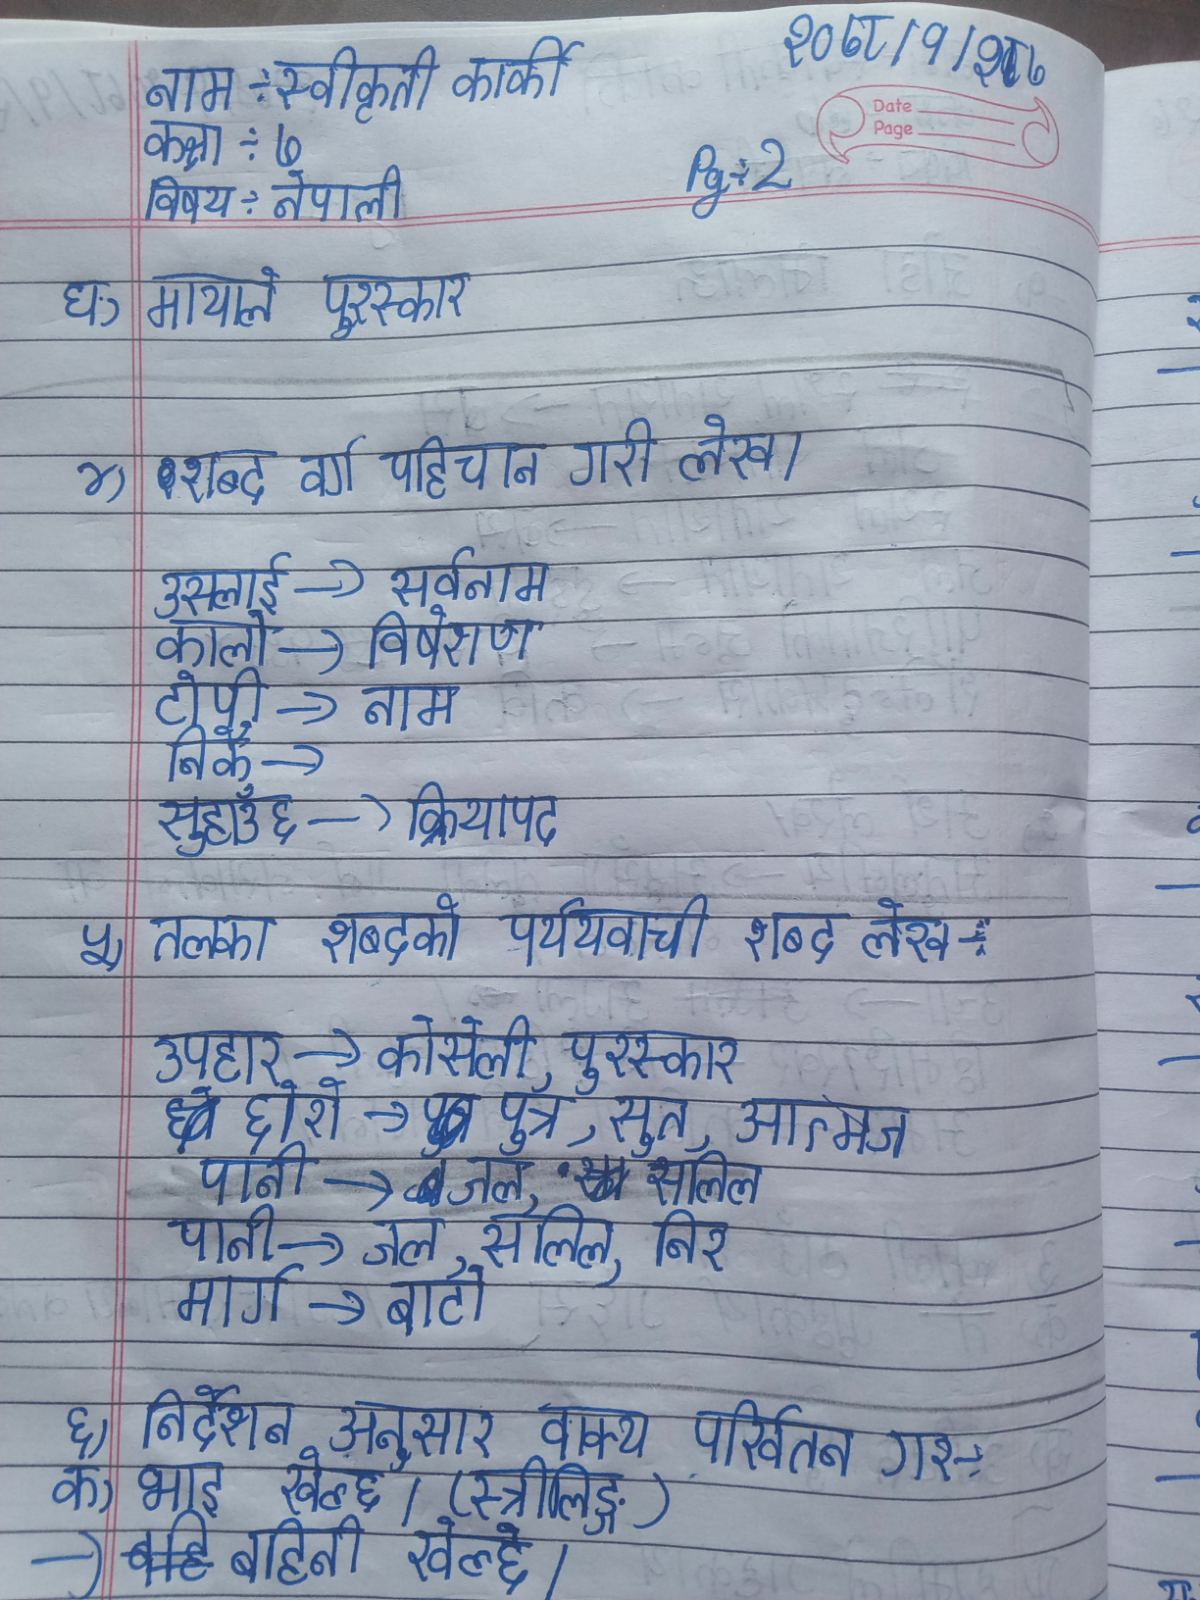 २०७८/१/२८
नाम ÷ स्वीकृती कार्की
Date
कक्षा ÷ ७
Page
Pg ÷ 2
विषय ÷ नेपाली
घ) मायाले पुरस्कार
४) शब्द वर्ग पहिचान गरी लेख।
उसलाई → सर्वनाम
कालो → विषेशण
टोपी →  नाम
निकै →
सुहाउँछ → क्रियापद
५) तलका शब्दको पर्ययवाची शब्द लेख ÷
उपहार → कोसेली, पुरस्कार
छोरो → पुत्र, सुत, आत्मज
पानी → जल, सलिल
पानी → जल, सलिल, निर
मार्ग → बाटो
६) निर्देशन अनुसार वाक्य परिर्वतन गर ÷
क) भाइ खेल्छ। (स्त्रीलिङ्ग)
→ बहिनी खेल्छे।